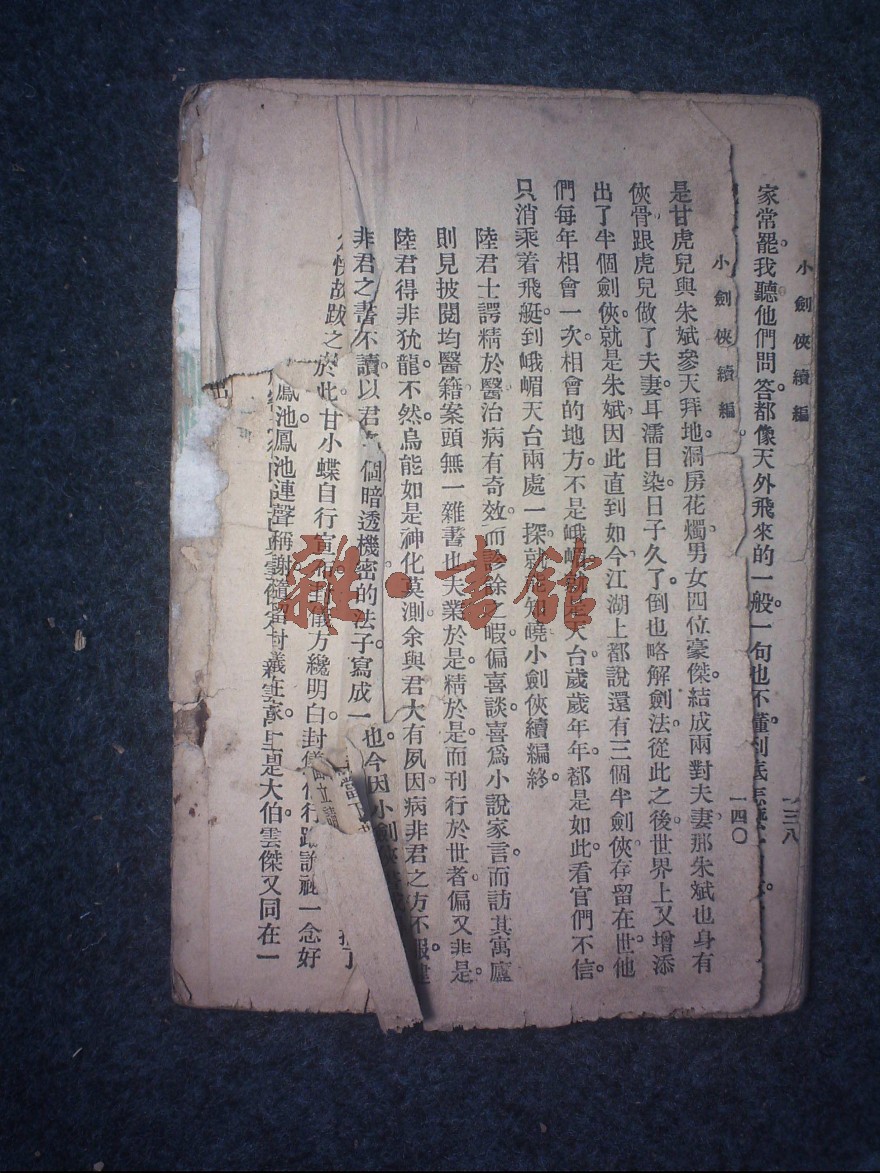 小劍俠續編
一三八
家常罷我聽他們問答都像天外飛來的一般一句也不懂到底怎
小劍俠續編
一四〇
是甘虎兒與朱斌參天拜地洞房花燭男女四位豪傑結成兩對夫妻那朱斌也身有
俠骨跟虎兒做了夫妻耳濡目染日子久了倒也略解劍法從此之後世界上又增添
出了半個劍俠就是朱斌因此直到如今江湖上都說還有三個半劍俠存留在世他
們每年相會一次相會的地方不是峨嵋就是天台歲歲年年都是如此看官們不信
只消乘着飛艇到峨嵋天台兩處一探就能知曉小劍俠續編終
陸君士諤精於醫治病有奇效而診餘之暇偏喜談喜爲小說家言而訪其寓廬
則見披閱均醫籍案頭無一雜書也夫業於是精於是而刊行於世者偏又非是
陸君得非犹龍不然烏能如是神化莫測余與君大有夙因病非君之方不服
非君之書不讀以君
個暗透機密的法子寫成一
也今因小劍俠
快故跋之
於此甘小蝶自行宣布封儀方纔明白封儀
行
一念好
鳳池鳳池連聲稱謝隨
封儀在家
是大伯雲傑又同在一
雜·書館